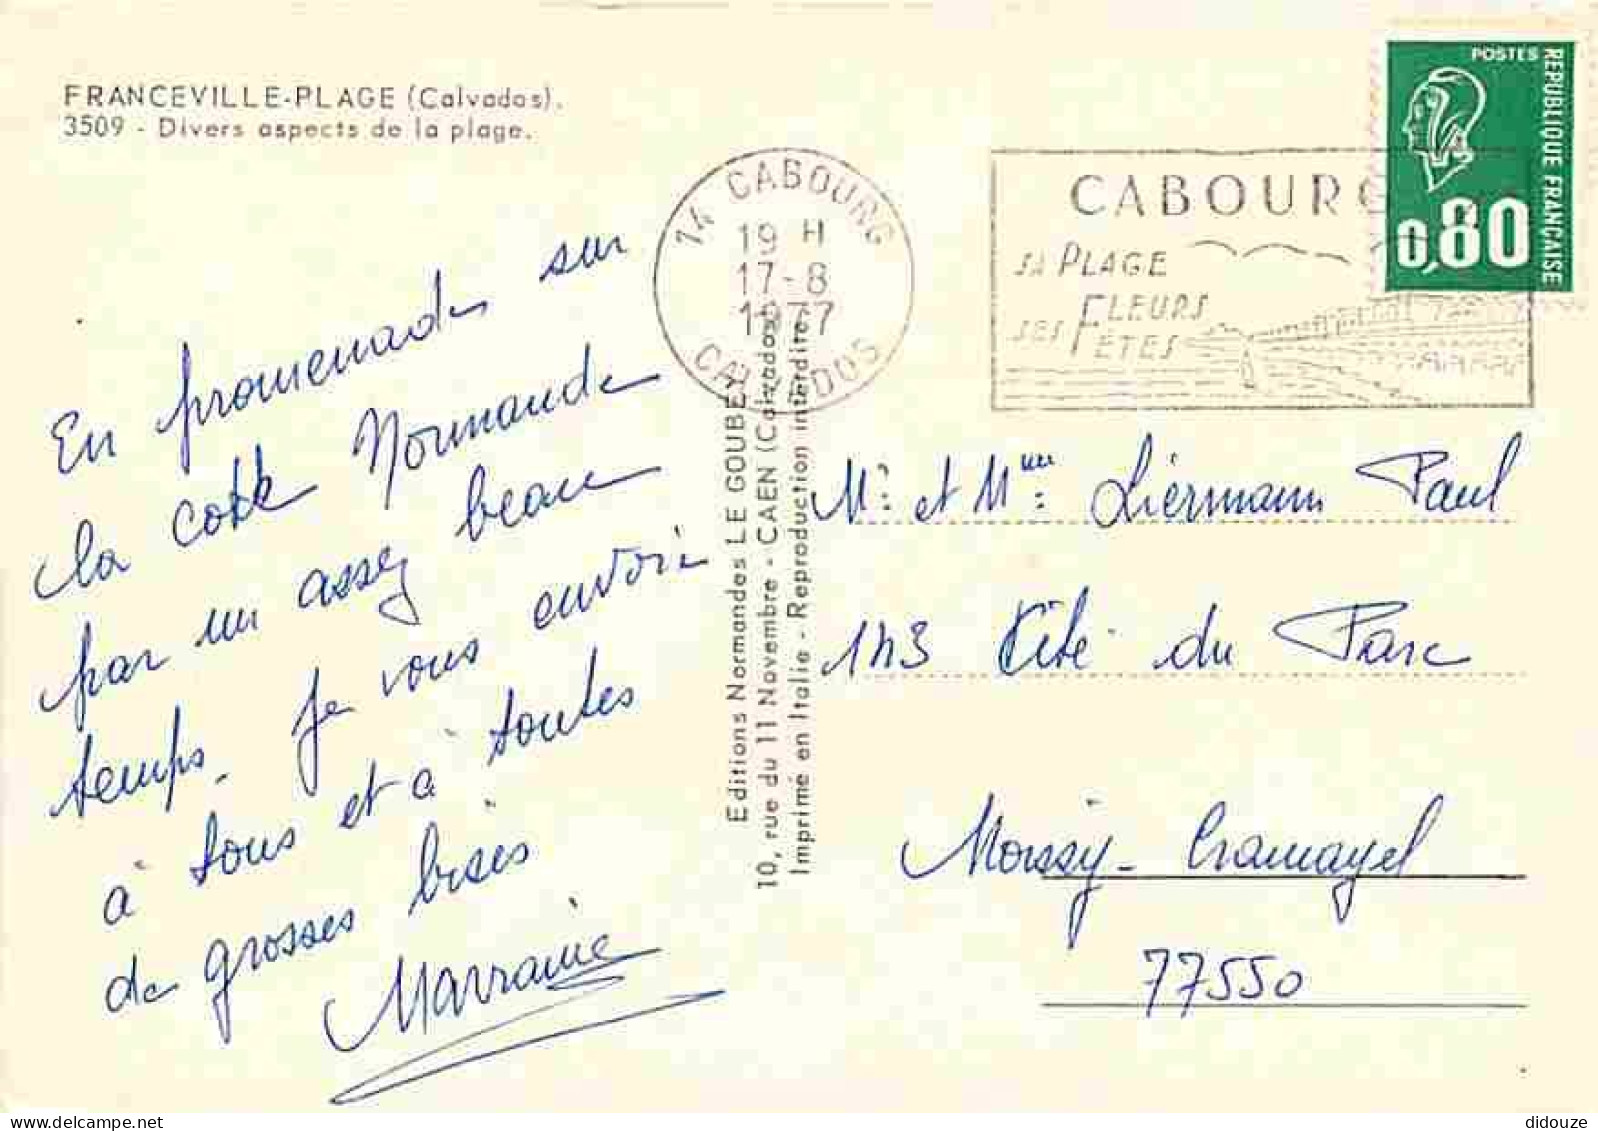 FRANCEVILLE-PLAGE (Calvados).
3509 - Divers aspects de la plage.
POSTES
REPUBLIQUE FRANCAISE
0,80
14 CABOURG
19 H
17-8
1977
CALVADOS
CABOURG
SA PLAGE
SES FLEURS
FÊTES
En promenade sur
la cote Normande
par un assez beau
temps. Je vous envoie
à tous et à toutes
de grosses bises
Marraine
Editions Normandes LE GOUBEY
10, rue du 11 Novembre - CAEN (Calvados)
Imprimé en Italie - Reproduction interdite
Mr. et Mme: Liermann Paul
143 Cité du Parc
Moissy-Cramayel
77550
didouze